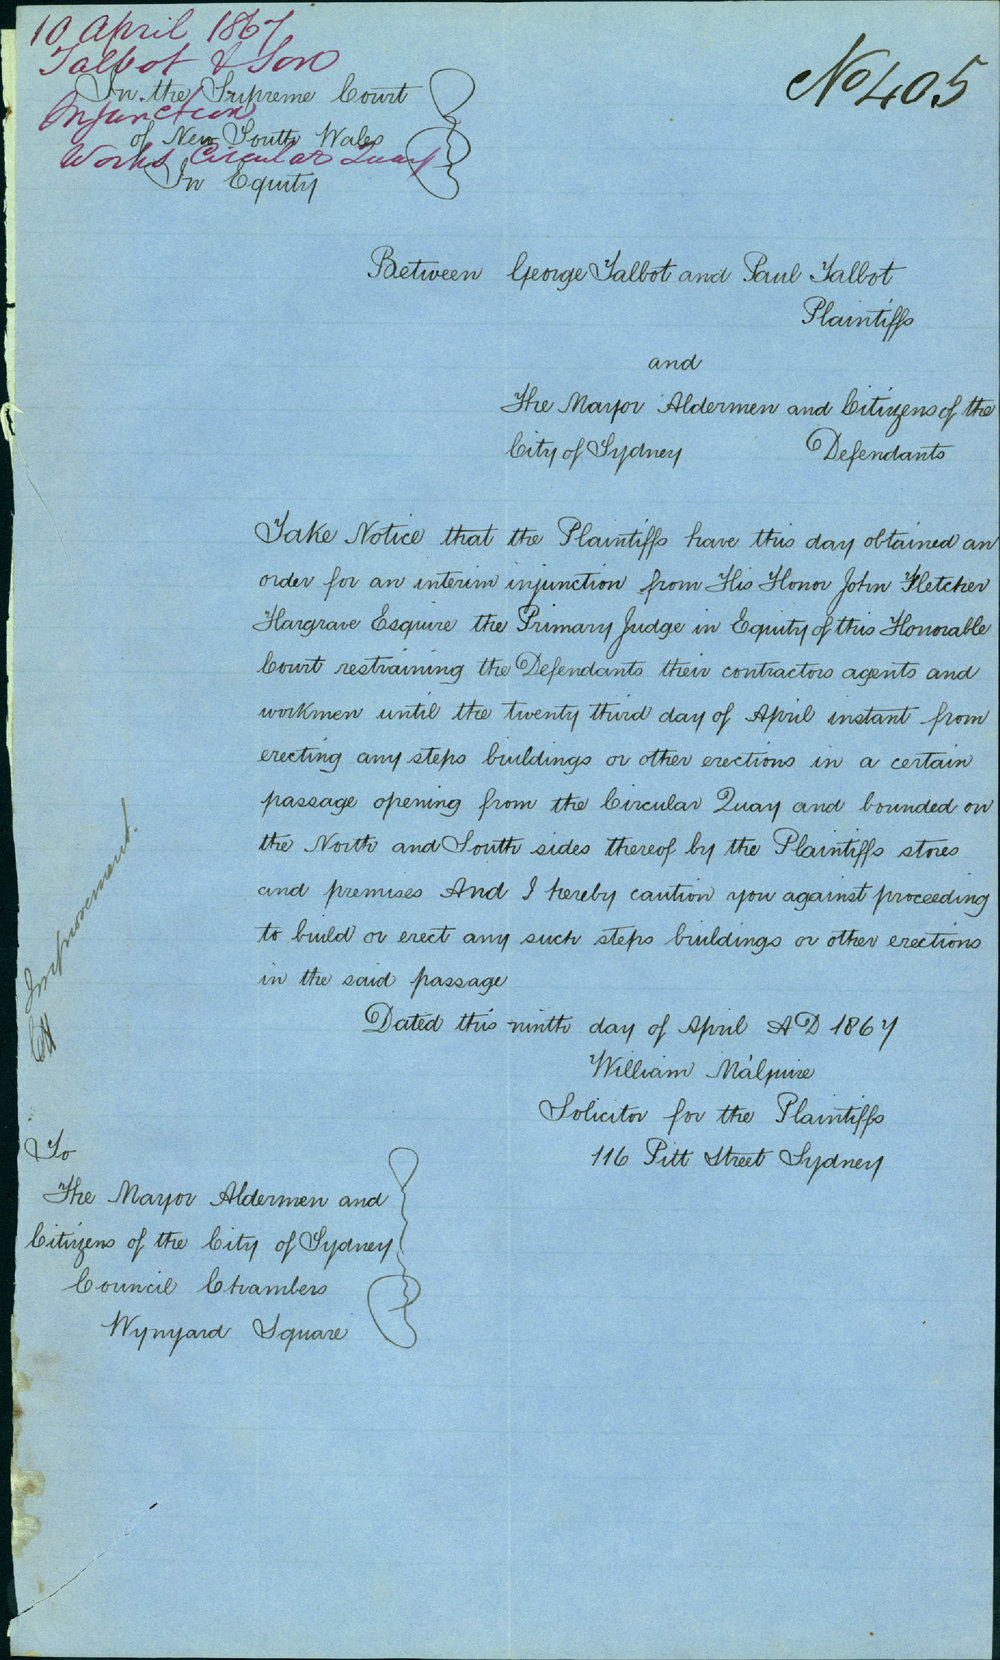 10 April 1867
Talbot & Son
Injunction
Works Circular Quay
No 405
In the Supreme Court
of New South Wales
In Equity
Between George Talbot and Paul Talbot
Plaintiffs
and
The Mayor Aldermen and Citizens of the
City of Sydney Defendants
Take Notice that the Plaintiffs have this day obtained an
order for an interim injunction from His Honor John Fletcher
Hargrave Esquire the Primary Judge in Equity of this Honorable
Court restraining the Defendants their contractors agents and
workmen until the twenty third day of April instant from
erecting any steps buildings or other erections in a certain
passage opening from the Circular Quay and bounded on
the North and South sides thereof by the Plaintiffs stores
and premises And I hereby caution you against proceeding
to build or erect any such steps buildings or other erections
in the said passage
Dated this ninth day of April AD 1867
William
Solicitor for the Plaintiffs
116 Pitt Street Sydney
Improvement.
To
The Mayor Aldermen and
Citizens of the City of Sydney
Council Chambers
Wynyard Square